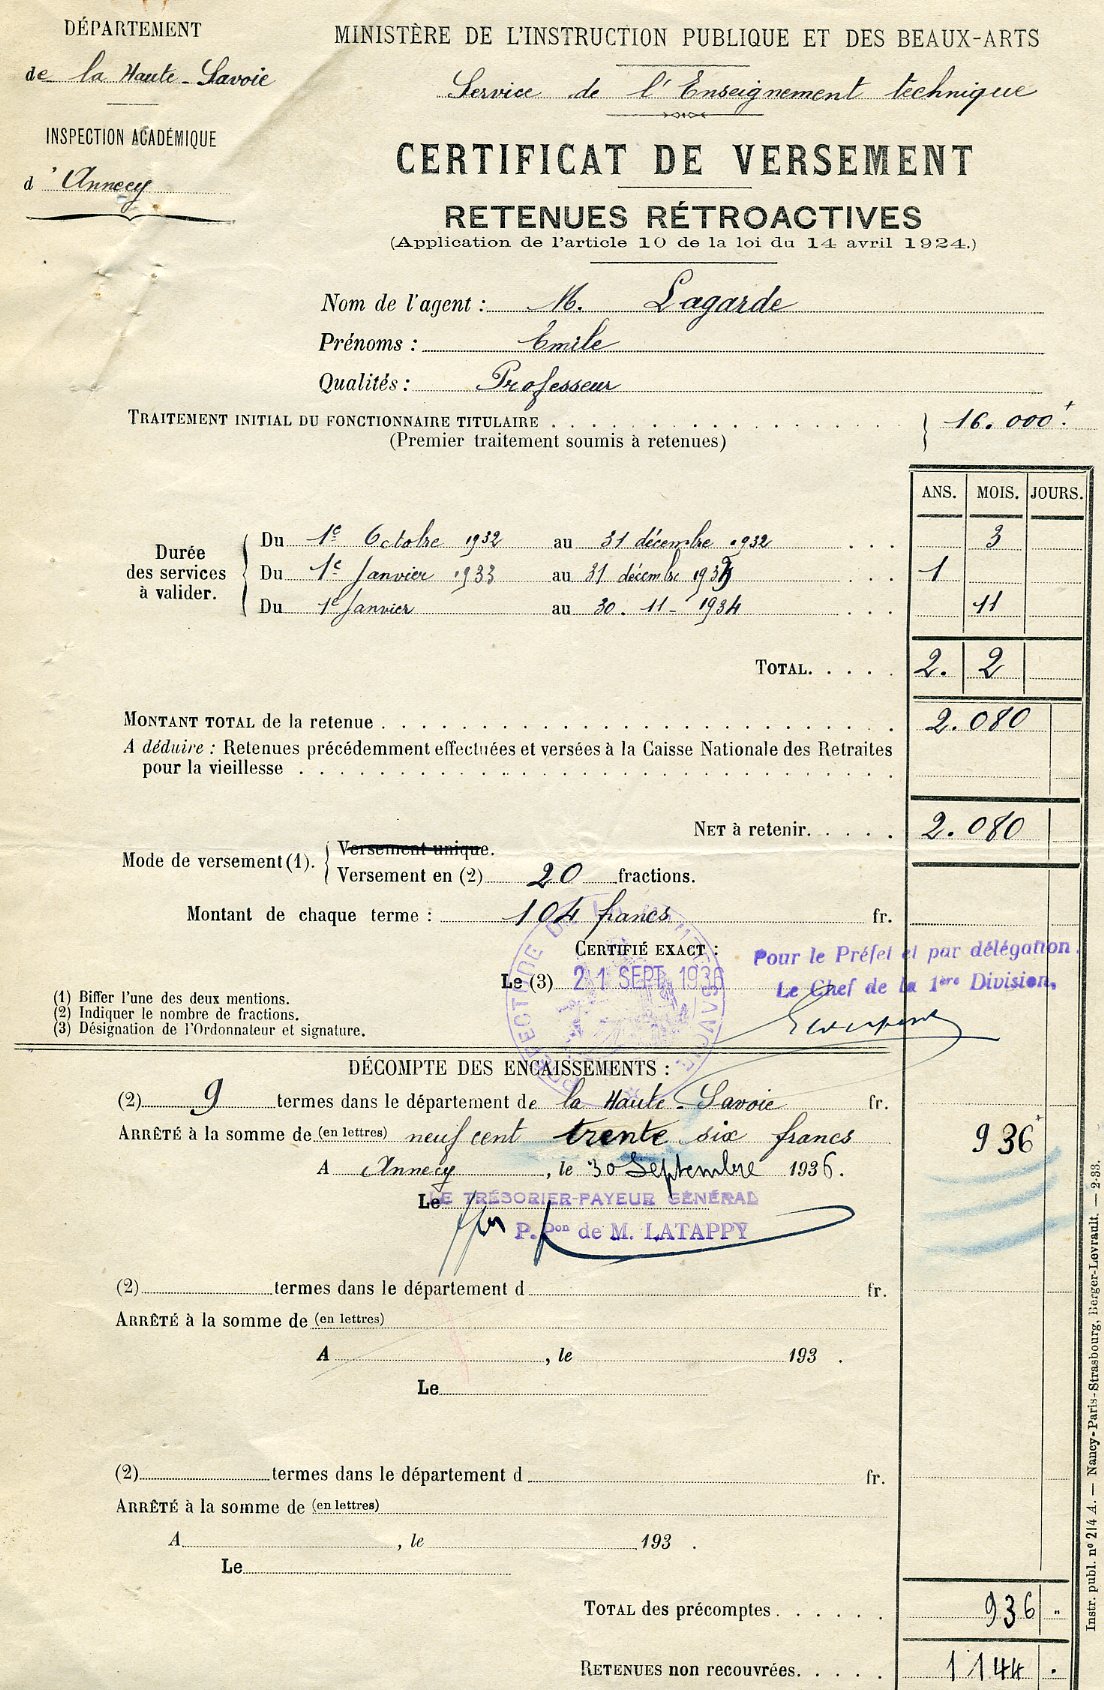 DÉPARTEMENT
de la Haute-Savoie
INSPECTION ACADÉMIQUE
d'Annecy
MINISTÈRE DE L'INSTRUCTION PUBLIQUE ET DES BEAUX-ARTS
Service de l'Enseignement technique
CERTIFICAT DE VERSEMENT
RETENUES RÉTROACTIVES
(Application de l'article 10 de la loi du 14 avril 1924.)
Nom de l'agent : M. Lagarde
Prénoms : Emile
Qualités : Professeur
TRAITEMENT INITIAL DU FONCTIONNAIRE TITULAIRE 16.000
(Premier traitement soumis à retenues)
ANS. MOIS. JOURS.
Durée des services à valider.
Du 1er Octobre 1932 au 31 décembre 1932 3
Du 1er Janvier 1933 au 31 décembre 1933 1
Du 1er Janvier au 30-11-1934 11
TOTAL. 2. 2
MONTANT TOTAL de la retenue 2.080
A déduire : Retenues précédemment effectuées et versées à la Caisse Nationale des Retraites
pour la vieillesse
NET à retenir. 2.080
Mode de versement (1). Versement unique.
Versement en (2) 20 fractions.
Montant de chaque terme : 104 francs fr.
CERTIFIÉ EXACT :
Le (3) 21 SEPT. 1936
Pour le Préfet et par délégation.
Le Chef de la 1ère Division,
PRÉFECTURE DE LA HAUTE SAVOIE
(1) Biffer l'une des deux mentions.
(2) Indiquer le nombre de fractions.
(3) Désignation de l'Ordonnateur et signature.
DÉCOMPTE DES ENCAISSEMENTS :
(2) 9 termes dans le département de la Haute-Savoie fr.
ARRÊTÉ à la somme de (en lettres) neuf cent trente six francs 936
A Annecy, le 30 Septembre 1936.
Le LE TRÉSORIER-PAYEUR GÉNÉRAL
P. Pon de M. LATAPPY
(2) termes dans le département d fr.
ARRÊTÉ à la somme de (en lettres)
A , le 193 .
Le
(2) termes dans le département d fr.
ARRÊTÉ à la somme de (en lettres)
A , le 193 .
Le
TOTAL des précomptes 936
RETENUES non recouvrées. 1144
Instr. publ. n° 214 A. — Nancy-Paris-Strasbourg, Berger-Levrault. — 2-33.